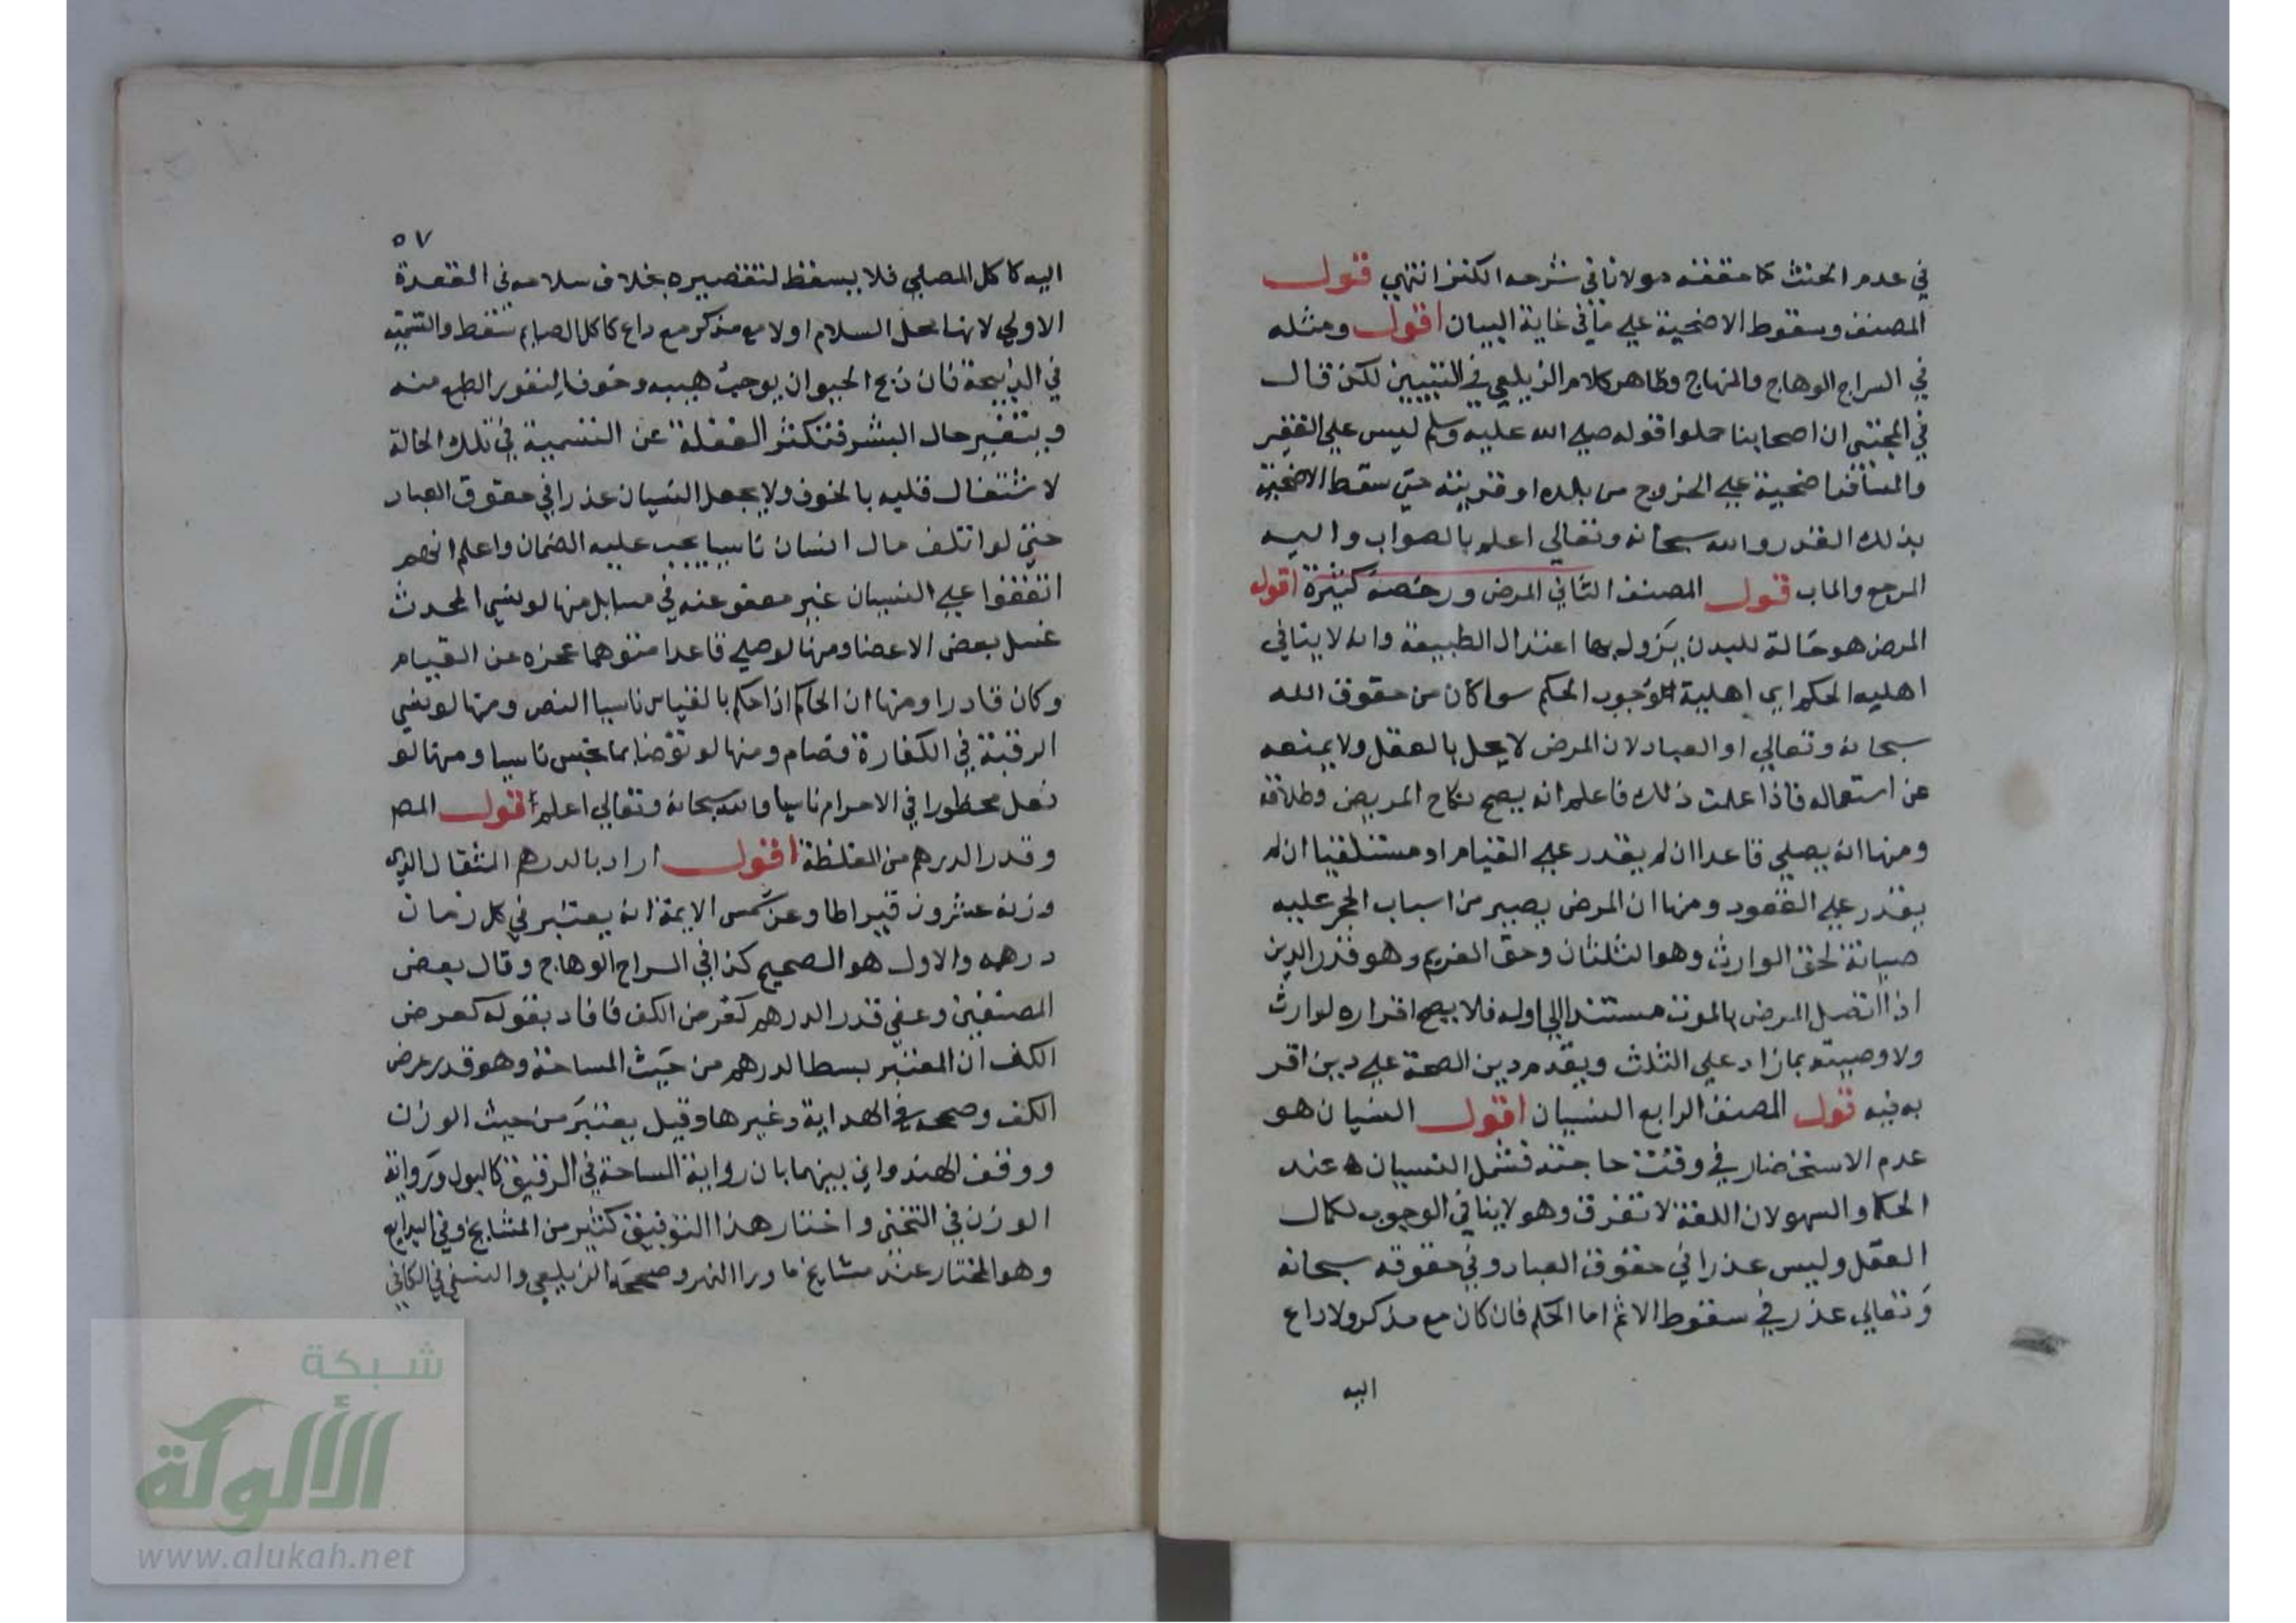 في عدم الحنث كما حققه مولانا في شرحه الكنز انتهى قول
المصنف وسقوط الاضحية علي ما في غاية البيان اقول ومثله
في السراج الوهاج والمنهاج وظاهر كلام الزيلعي في التبيين لكن قال
في المجتبى ان اصحابنا حملوا قوله صلي الله عليه وسلم ليس علي الفقير
والمسافر اضحية علي الخروج من بلده او قريته حتي سقط الاضحية
بذلك القدر والله سبحانه وتعالي اعلم بالصواب واليه
المرجع والماب قول المصنف الثاني المرض ورخصه كثيرة اقول
المرض هو حالة للبدن يزول بها اعتدال الطبيعة وانه لا ينافي
اهليه الحكم اي اهلية لوجوب الحكم سوا كان من حقوق الله
سبحانه وتعالي او العباد لان المرض لا يحل بالعقل ولا يمنعه
عن استعماله فاذا علمت ذلك فاعلم انه يصح نكاح المريض وطلاقه
ومنها انه يصلي قاعدا ان لم يقدر علي القيام او مستلقيا ان لم
يقدر علي القعود ومنها ان المرض يصير من اسباب الحجر عليه
صيانة لحق الوارث وهو الثلثان وحق الغريم وهو قدر الدين
اذا اتصل المرض بالموت مستندا الي اوله فلا يصح اقراره لوارث
ولا وصيته بما زاد علي الثلث ويقدم دين الصحة علي دين اقر
به فيه قول المصنف الرابع النسيان اقول النسيان هو
عدم الاستحضار في وقت حاجته فشمل النسيان عند
الحكما والسهو لان اللغة لا تفرق وهو لا ينافي الوجوب لكمال
العقل وليس عذرا في حقوق العباد وفي حقوقه سبحانه
وتعالي عذر في سقوط الاثم اما الحكم فان كان مع مذكر ولا داع
اليه
٥٧
اليه كاكل المصلي فلا يسقط لتقصيره بخلاف سلامه في القعدة
الاولي لانها محل السلام اولا مع مذكر مع داع كاكل الصايم سقط والتسمية
في الذبيحة فان ذبح الحيوان يوجب هيبه وخوفا لنفور الطبع منه
ويتغير حال البشر فتكثر الغفلة عن التسمية في تلك الحالة
لاشتغال قلبه بالخوف ولا يجعل النسيان عذرا في حقوق العباد
حتي لو اتلف مال انسان ناسيا يجب عليه الضمان واعلم انهم
اتفقوا علي النسيان غير معفو عنه في مسايل منها لو نسي المحدث
غسل بعض الاعضا ومنها لو صلي قاعدا متوهما عجزه عن القيام
وكان قادرا ومنها ان الحاكم اذا حكم بالقياس ناسيا النص ومنها لو نسي
الرقبة في الكفارة فصام ومنها لو توضا بما نجس ناسيا ومنها لو
فعل محظورا في الاحرام ناسيا والله سبحانه وتعالي اعلم اقول المص
وقدر الدرهم من المغلظة اقول اراد بالدرهم المثقال الذي
وزنه عشرون قيراطا وعن شمس الايمة انه يعتبر في كل زمان
درهمه والاول هو الصحيح كذا في السراج الوهاج وقال بعض
المصنفين وعفي قدر الدرهم كعرض الكف فافاد بقوله كعرض
الكف ان المعتبر بسط الدرهم من حيث المساحة وهو قدر عرض
الكف وصححه في الهداية وغيرها وقيل يعتبر من حيث الوزن
ووفق الهندواني بينهما بان رواية المساحة في الرقيق كالبول ورواية
الوزن في الثخين واختار هذا التوفيق كثير من المشايخ وفي البدايع
وهو المختار عند مشايخ ما ورا النهر وصححه الزيلعي والنسفي في الكافي
شبكة
الألوكة
www.alukah.net